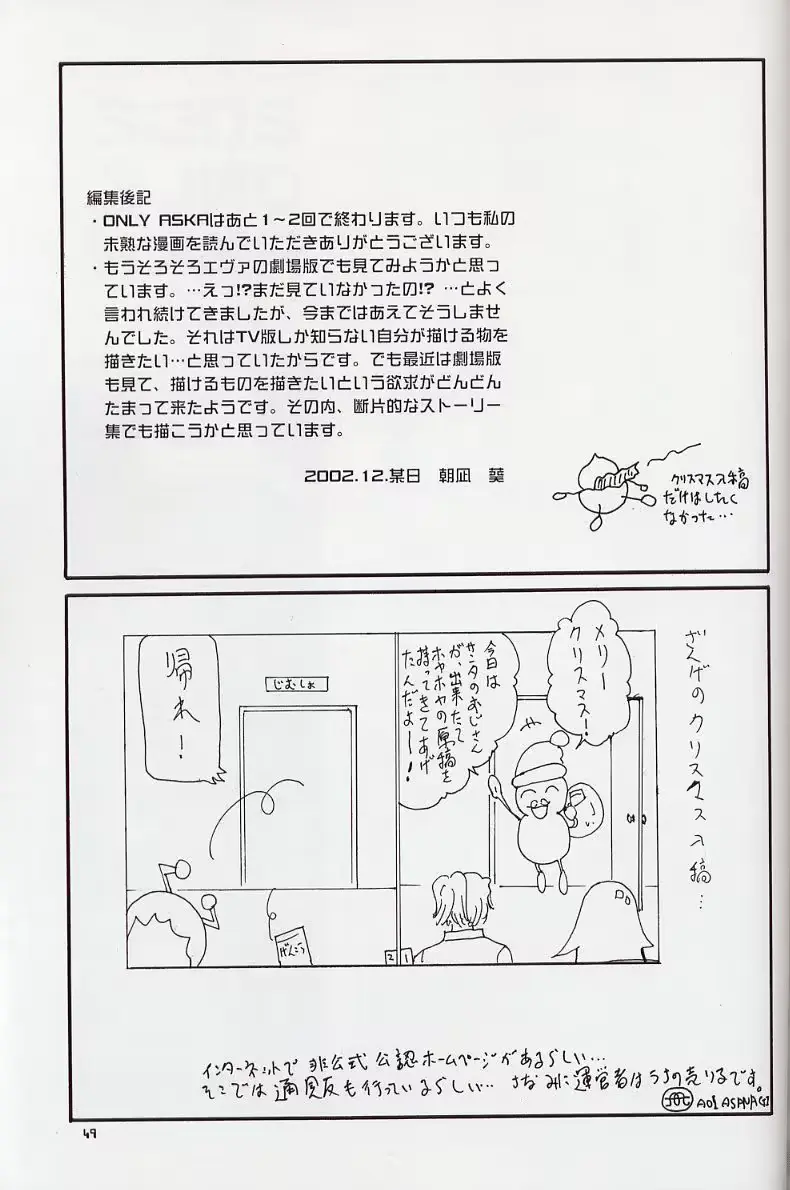 編集後記
・ONLY ASKAはあと1～2回で終わります。いつも私の
未熟な漫画を読んでいただきありがとうございます。
・もうそろそろエヴァの劇場版でも見てみようかと思っ
ています。…えっ!?まだ見ていなかったの!? …とよく
言われ続けてきましたが、今まではあえてそうしませ
んでした。それはTV版しか知らない自分が描ける物を
描きたい…と思っていたからです。でも最近は劇場版
も見て、描けるものを描きたいという欲求がどんどん
たまって来たようです。その内、断片的なストーリー
集でも描こうかと思っています。
2002.12.某日 朝凪 葵
クリスマス入稿
だけはしたく
なかった…
ざんげのクリスマス入稿…
メリー
クリスマス!
今日は
サンタのおじさん
が、出来たて
ホヤホヤの原稿を
持ってきてあげ
たんだよー!
1
じむしょ
帰れ!
げんこう
2
インターネットで 非公式 公認ホームページがあるらしい…
そこでは通販も行っているらしい… ちなみに運営者はうちの売り子です。
AOI ASANAGI
49